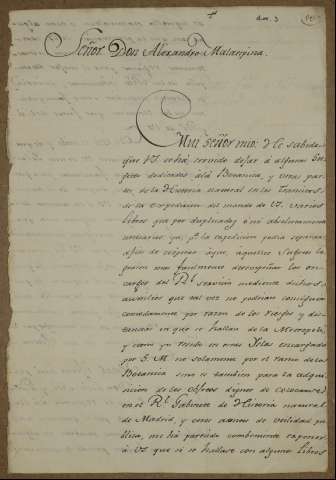 doc. 3
Señor Don Alexandro Malaspina.
Muy señor mio: He sabido
que V. se ha servido dejar à algunos Su-
getos dedicados á la Botanica, y otras par-
tes de la Historia natural en las
de la expedicion del mando de V. varios
Libros que por duplicados, ò no absolutamente
necesarios ya, pª la expedicion podia separar
afin de que aquellos Sugetos
mas facilmente desempeñar los en-
cargos del Rl servicio mediante dichos
auxilios que tal vez no podrian conseguir
comodamente por razon de los riesgos y dis-
tancias en que se hallan de la Metropoli,
y como yo resido en estas Yslas encargado
por S. M. no solamente por el ramo de la
Botanica sino es tambien para la adqui-
sicion de los dignos de colocarse
en el Rl Gabinete de Historia natural
de Madrid, y otros ramos de utilidad pu-
blica, me ha parecido combeniente exponer
à V. que si se hallase con algunos Libros